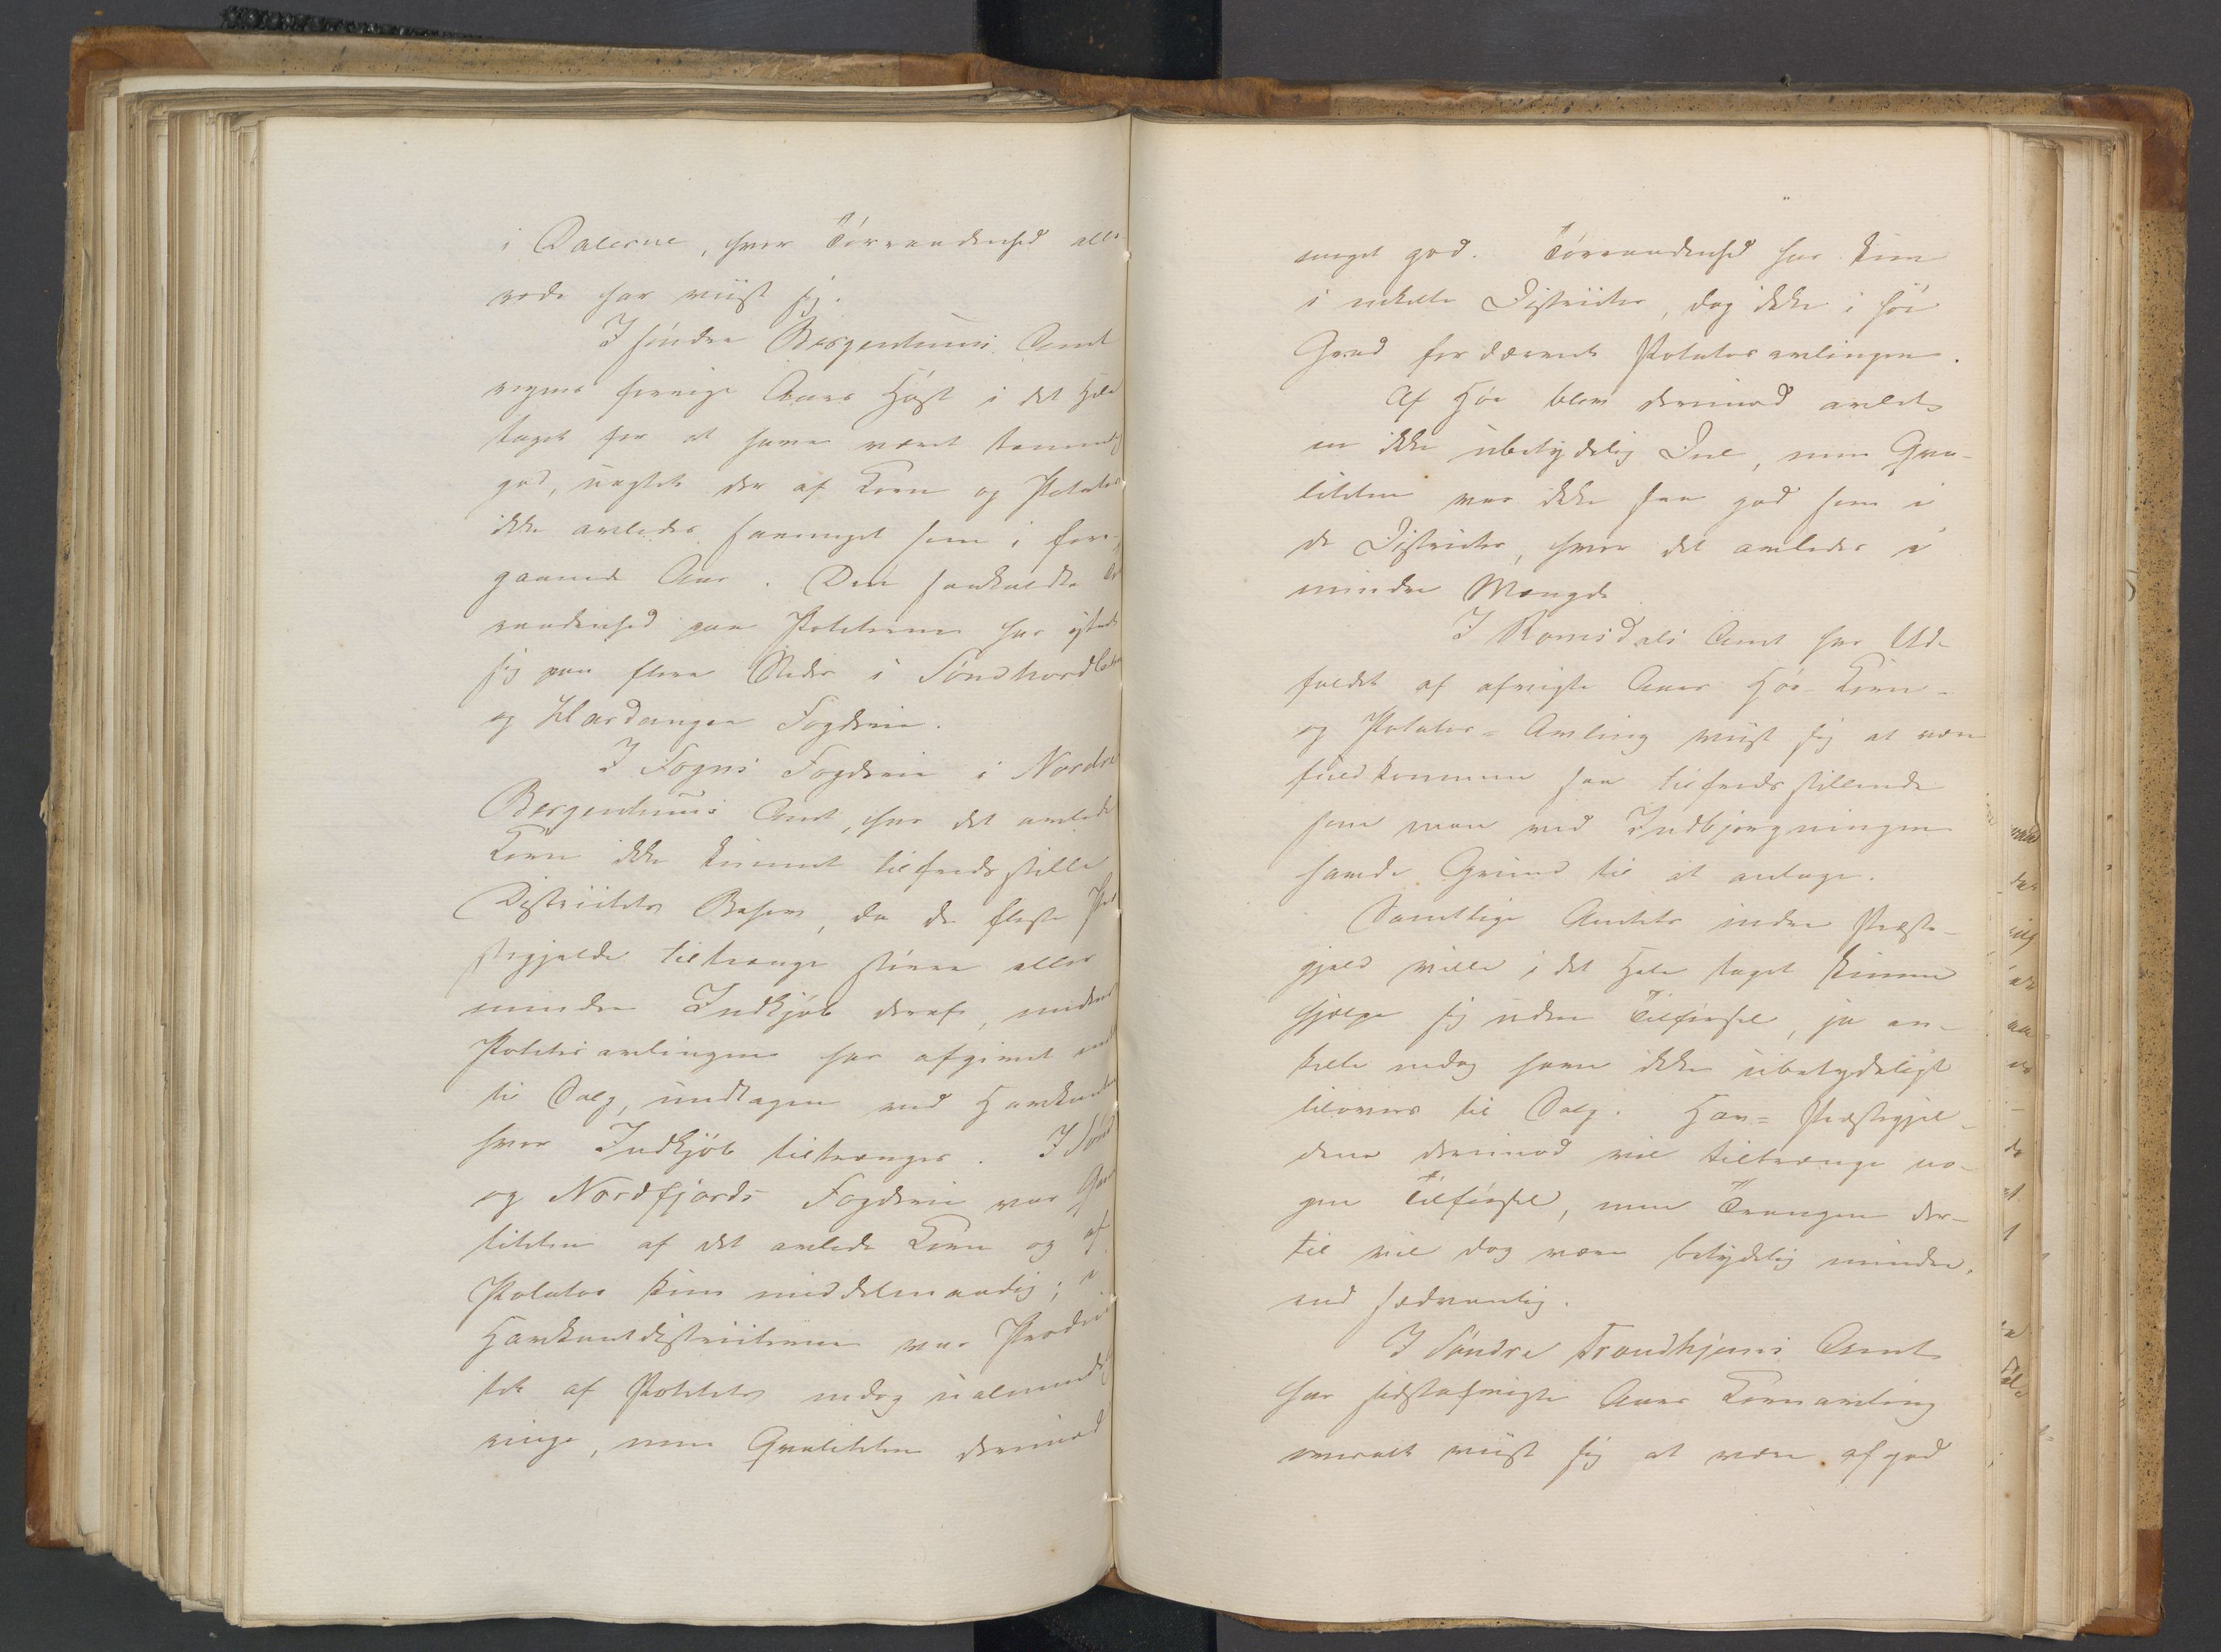 i Dalerne, hvor Tørraadenhed alle
rede har viist sig.
I søndre Bergenhuus Amt
regnes forrige Aars Høst i det Hele
taget for at have været temmelig
god, uagtet der af Korn og Potatos
ikke avledes saameget som i fore-
gaaende Aar. Den saakaldte Tør
raadenhed paa Poteterne har yttret
sig paa flere Steder i Søndhordlehn
og Hardanger Fogderie.
I Sogns Fogderie i Nordre
Bergenhuus Amt, har det avlede
Korn ikke kunnet tilfredsstille
Districtets Behov, da de fleste Præ
stegjelde tiltrænge større eller
mindre Indkjøb deraf, medens
Potetesavlingen har afgivet endel
til Salg, undtagen ved Havkanten
hvor Indkjøb tiltrænges. I Sønd
og Nordfjords Fogderie var Qva
liteten af det avlede Korn og af
Potatos kun middelmaadig; i
Havkantdistricterne var Produc
tet af Potetes endog ualmindelig
ringe, men Qvaliteten derimod
meget god. Tørraadenhed har kun
i enkelte Districter, dog ikke i høi
Grad fordærvet Potatosavlingen.
Af Høe blev derimod avlet
en ikke ubetydelig Deel, men Qva-
liteten var ikke saa god som i
de Districter, hvor det avledes i
mindre Mængde
I Romsdals Amt har Ud-
faldet af afvigte Aars Høe- Korn-
og Potatos- Avling viist sig at være
fuldkommen saa tilfredsstillende
som man ved Indbjergningen
havde Grund til at antage.
Samtlige Amtets indre Præste-
gjeld ville i det Hele taget kunne
hjælpe sig uden Tilførsel, ja en-
kelte endog have ikke ubetydeligt
tilovers til Salg. Hav- Præstegjel-
dene derimod vil tiltrænge no-
gen Tilførsel, men Trangen der-
til vil dog være betydelig mindre,
end sædvanlig.
I Søndre Trondhjems Amt
har sidstafvigte Aars Kornavling
overalt viist sig at være af god